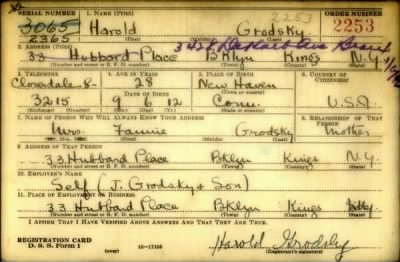 SERIAL NUMBER 1. NAME (Print) ORDER NUMBER
3065 Harold Grodsky 2253 2253
2365 (First) (Middle) (Last)
2. ADDRESS (Print) 3458 DeKalb Ave Bronx
33 Hubbard Place Bklyn Kings N.Y.
(Number and street or R. F. D. number) (Town) (County) (State)
3. TELEPHONE 4. AGE IN YEARS 5. PLACE OF BIRTH 6. COUNTRY OF CITIZENSHIP
Cloverdale 8- 28 New Haven
DATE OF BIRTH (Town or county)
3215 9 6 12 Conn. U.S.A
(Exchange) (Number) (Mo.) (Day) (Yr.) (State or country)
7. NAME OF PERSON WHO WILL ALWAYS KNOW YOUR ADDRESS 8. RELATIONSHIP OF THAT PERSON
Mrs. Fannie Grodsky Mother
(Mr., Mrs., Miss) (First) (Middle) (Last)
9. ADDRESS OF THAT PERSON
33 Hubbard Place Bklyn Kings N.Y.
(Number and street or R. F. D. number) (Town) (County) (State)
10. EMPLOYER'S NAME
Self (J. Grodsky & Son)
11. PLACE OF EMPLOYMENT OR BUSINESS
33 Hubbard Place Bklyn Kings N.Y.
(Number and street or R. F. D. number) (Town) (County) (State)
I AFFIRM THAT I HAVE VERIFIED ABOVE ANSWERS AND THAT THEY ARE TRUE.
REGISTRATION CARD
D. S. S. Form 1 (over) 16-17105 Harold Grodsky
(Registrant's signature)